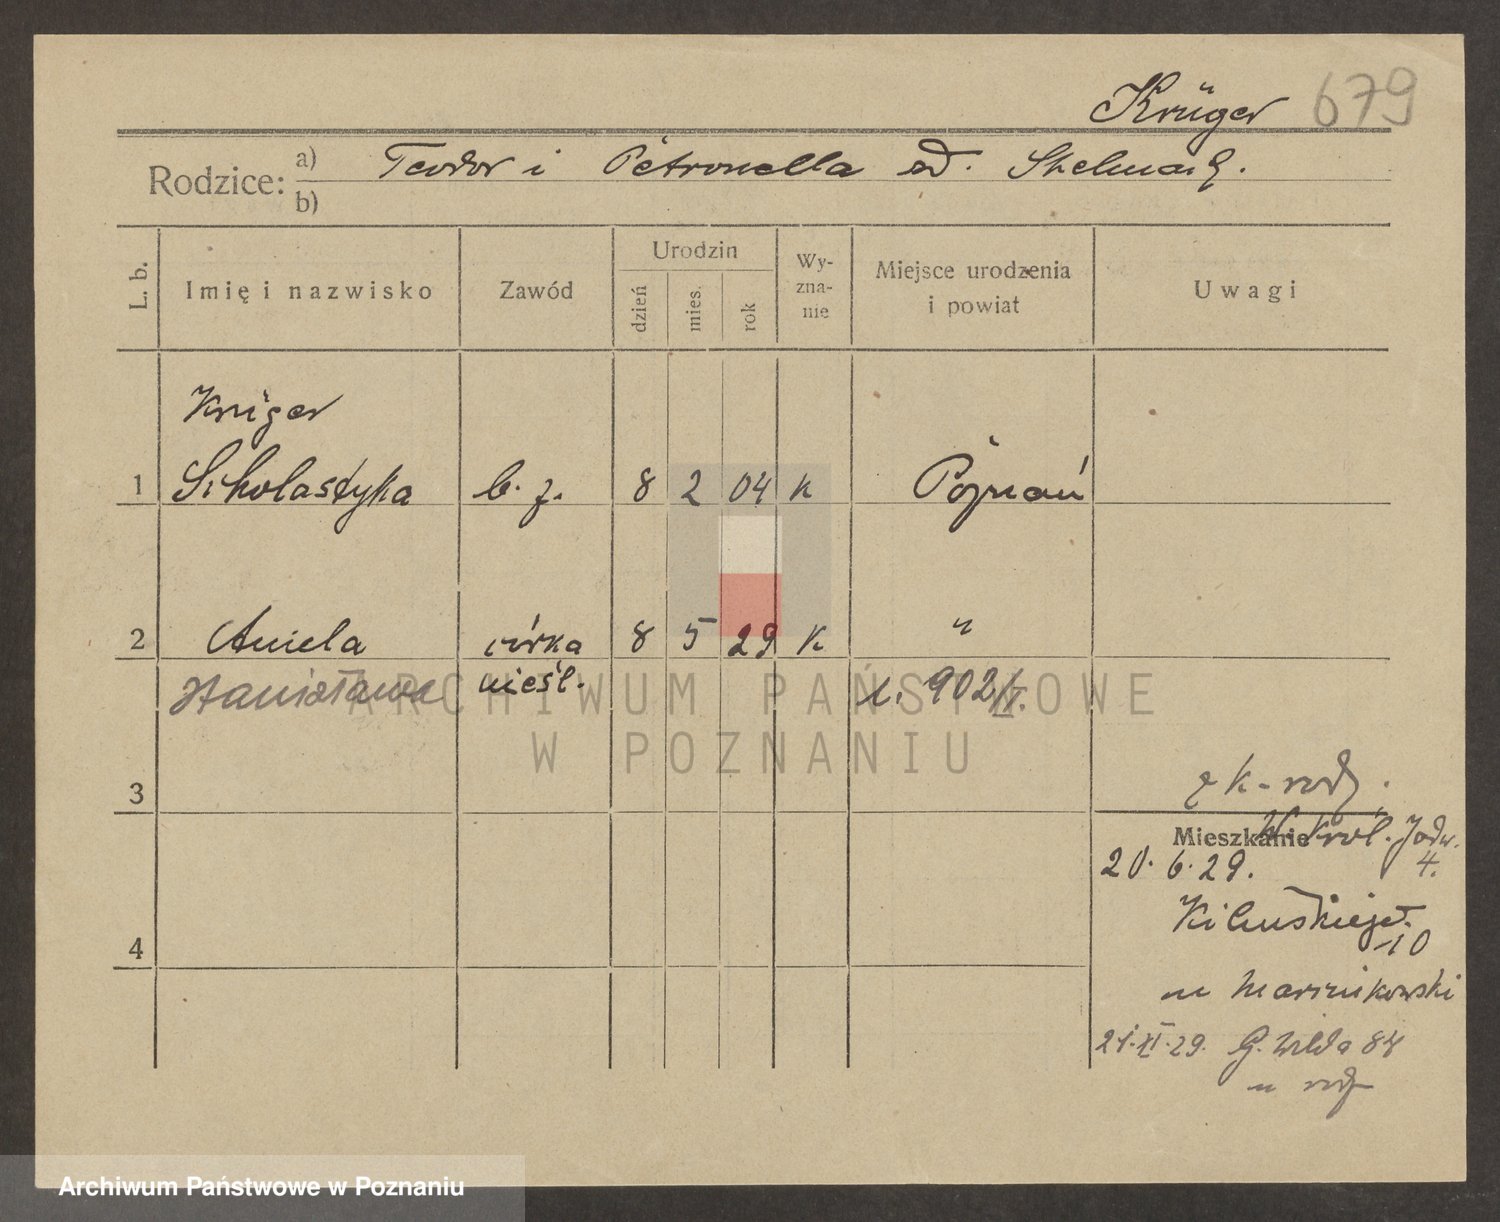 Krüger 679
Rodzice: a) Teodor i Petronella
b)
L. b.
Imię i nazwisko
Zawód
Urodzin
dzień
mies.
rok
Wy-
zna-
nie
Miejsce urodzenia
i powiat
Uwagi
Krüger
1 Scholastyka b. z. 8 2 04 k Poznań
2 Aniela córka 8 5 29 k "
Stanisława nieśl. 902/II.
3
k-rodz.
Mieszkanie
Król. Jadw.
20. 6. 29. 4.
10
4
u Marcinkowski
21.XI.29. G. Wilda 84
u rodz
ARCHIWUM PAŃSTWOWE
W POZNANIU
Archiwum Państwowe w Poznaniu